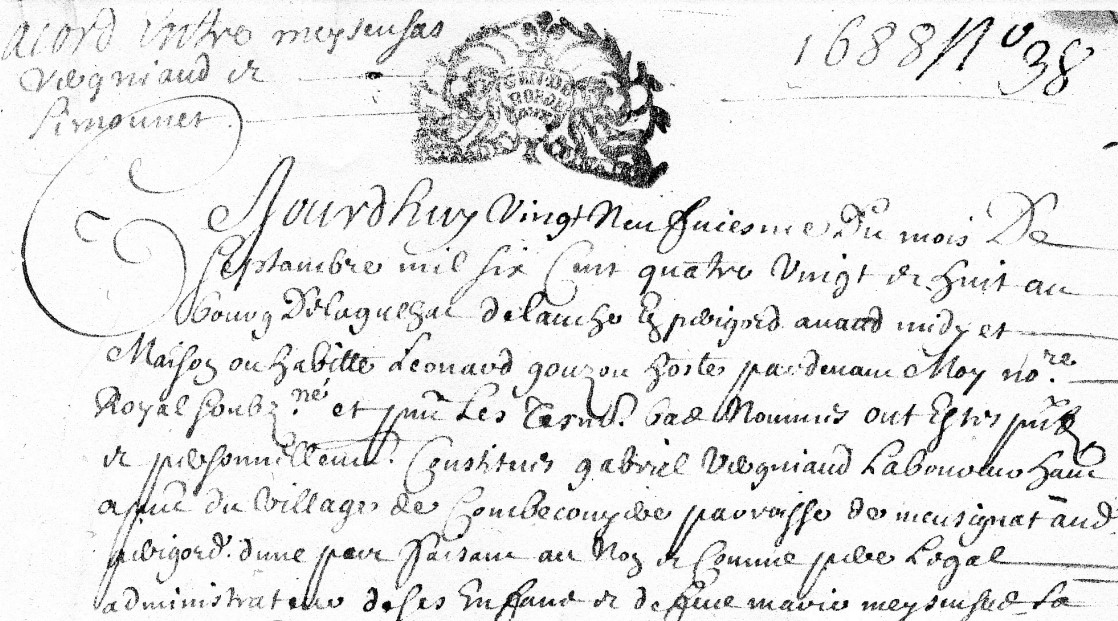 acord entre meysensas
vergniaud et
Simounet
1688 No 38
GEN DE
BORDE
AUX
Aujourdhuy vingt neufviesme du mois De
septambre mil six cent quatre vingt et huit au
bourg Delaguelhac delauche En perigord avant midy et
Maison ou habitte Leonard gouzou hoste pardevant Moy nore
Royal soubzné et pnt Les Tesm. bas Nommes ont Estes pnts
et personnellemt. Constitues gabriel vergniaud Laboureur habt
a pnt du village de Combecouyere parroisse de meusignat aud.
perigord. dune part faisant au Nom et Comme pere Legal
administrateur de ses Enfans et de feue marie meysensas sa